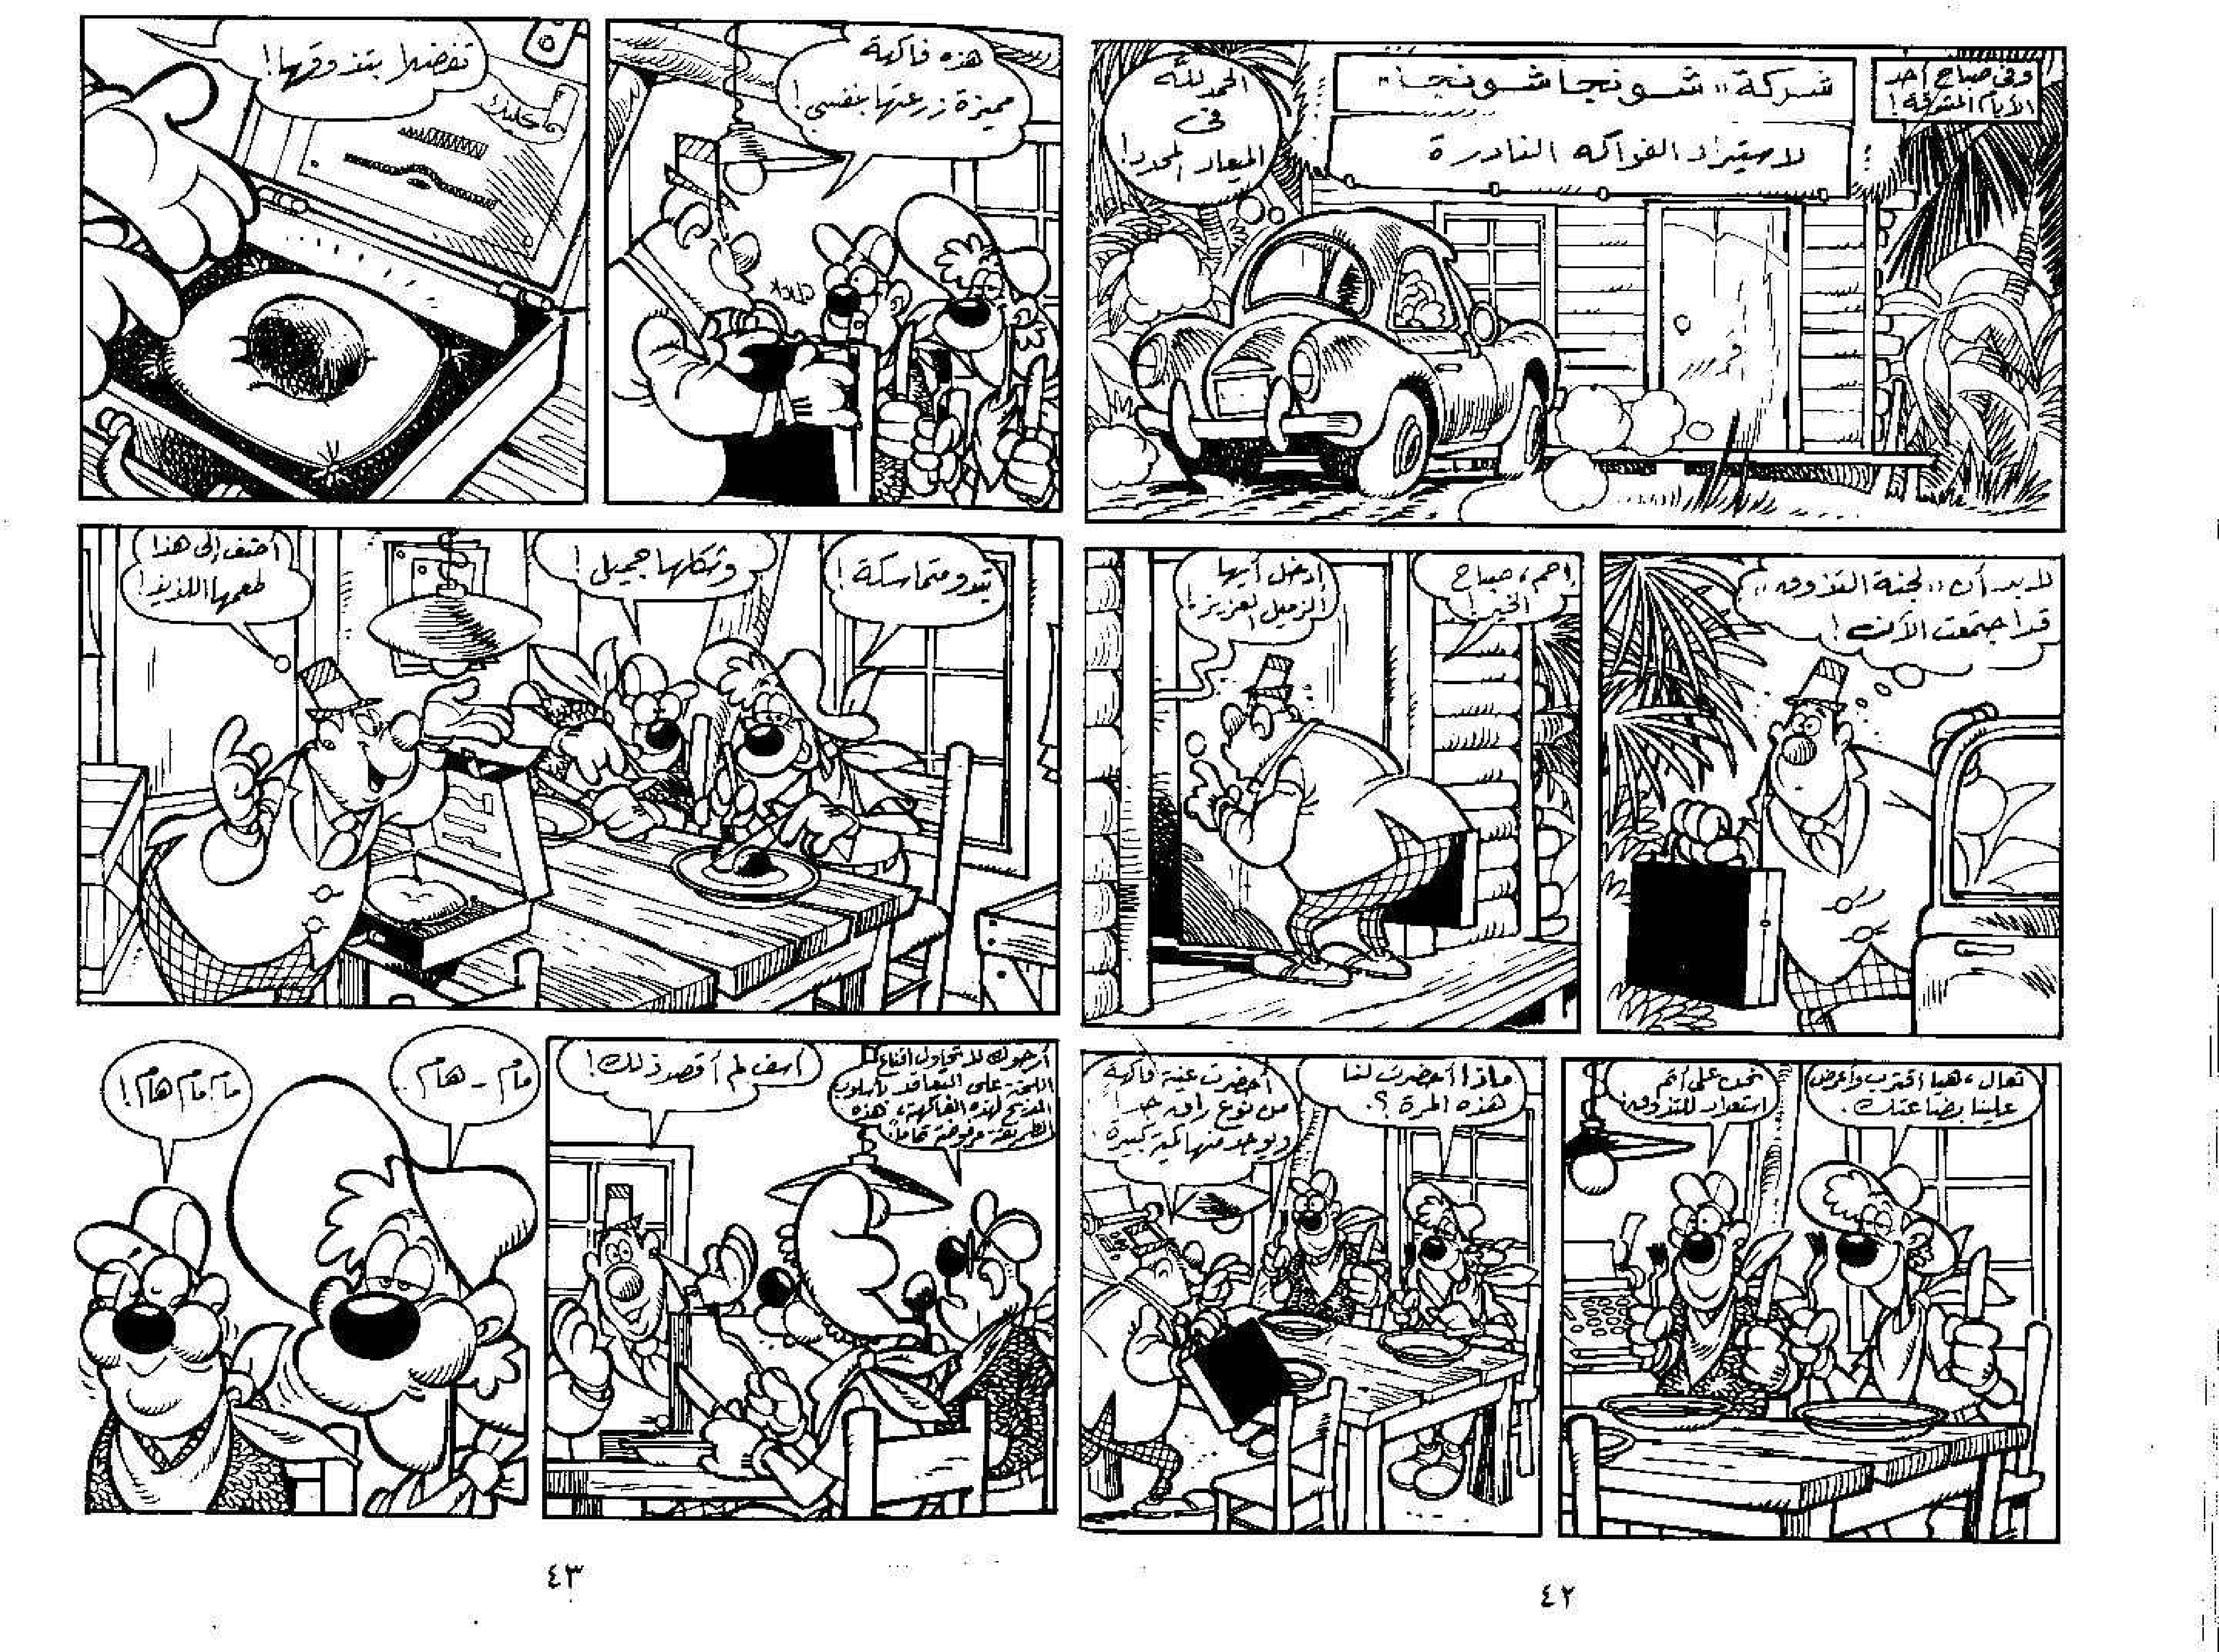 وفى صباح أحد
الأيام المشرقة!
شركة «شونجاشونجا»
لاستيراد الفواكه النادرة
الحمد لله
فى
الميعاد المحدد!
لابد أن «لجنة التذوق»
قد اجتمعت الآن!
إحم، صباح
الخير!
إدخل أيها
الزميل العزيز!
تعال، هيا اقترب وأعرض
علينا بضاعتك.
نحن على أتم
استعداد للتذوق!
ماذا أحضرت لنا
هذه المرة؟
أحضرت عينة فاكهة
من نوع راق جداً
ويوجد منها كمية كبيرة
٤٢
هذه فاكهة
مميزة زرعتها بنفسى!
CLICK
تفضلا بتذوقها!
تبدو متماسكة!
وشكلها جميل!
أضف إلى هذا
طعمها اللذيذ!
أرجوك لا تحاول إقناع
اللجنة على التعاقد بأسلوب
المديح لهذه الفاكهة، هذه
الطريقة مرفوضة تماماً!
آسف لم أقصد ذلك!
مام - هام
مام مام هام!
٤٣